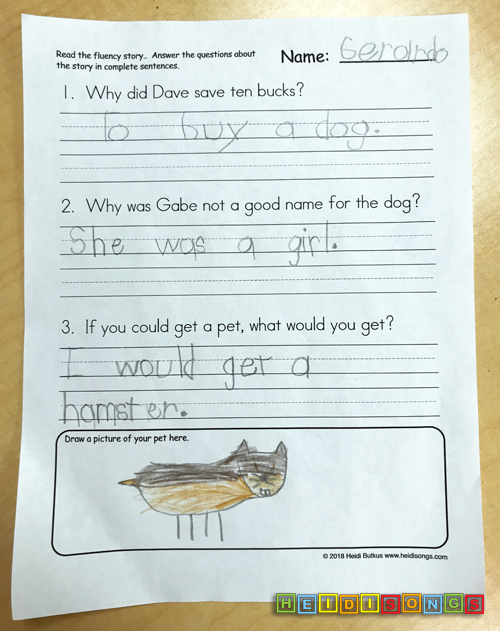 Read the fluency story.. Answer the questions about
the story in complete sentences.
Name: Gerolndo
1. Why did Dave save ten bucks?
To buy a dog.
2. Why was Gabe not a good name for the dog?
She was a girl.
3. If you could get a pet, what would you get?
I would get a
hamster.
Draw a picture of your pet here.
© 2018 Heidi Butkus www.heidisongs.com
HEIDISONGS